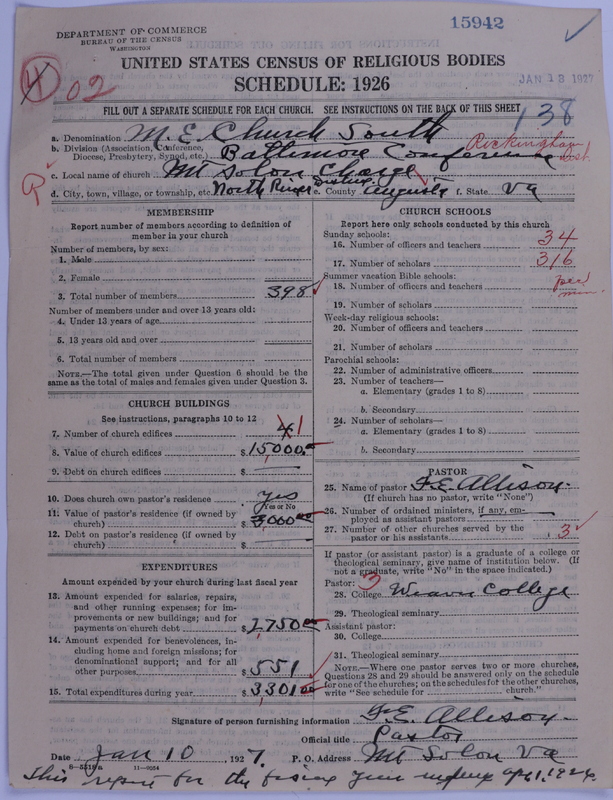 15942
DEPARTMENT OF COMMERCE
BUREAU OF THE CENSUS
WASHINGTON
UNITED STATES CENSUS OF RELIGIOUS BODIES
SCHEDULE: 1926
JAN 13 1927
02
FILL OUT A SEPARATE SCHEDULE FOR EACH CHURCH. SEE INSTRUCTIONS ON THE BACK OF THIS SHEET
138
a. Denomination M. E. Church South
b. Division (Association, Conference, Diocese, Presbytery, Synod, etc.) Baltimore Conference Rockingham Dist.
c. Local name of church Mt Solon Charge
d. City, town, village, or township, etc. North River District e. County Augusta f. State Va
MEMBERSHIP
Report number of members according to definition of
member in your church
Number of members, by sex:
1. Male
2. Female
3. Total number of members 398
Number of members under and over 13 years old:
4. Under 13 years of age
5. 13 years old and over
6. Total number of members
NOTE.—The total given under Question 6 should be
the same as the total of males and females given under Question 3.
CHURCH BUILDINGS
See instructions, paragraphs 10 to 12
7. Number of church edifices 4 1
8. Value of church edifices $15000.00
9. Debt on church edifices $
10. Does church own pastor's residence yes
Yes or No
11. Value of pastor's residence (if owned by
church) $3000.00
12. Debt on pastor's residence (if owned by
church) $
EXPENDITURES
Amount expended by your church during last fiscal year
13. Amount expended for salaries, repairs,
and other running expenses; for im-
provements or new buildings; and for
payments on church debt $2750.00
14. Amount expended for benevolences, in-
cluding home and foreign missions; for
denominational support; and for all
other purposes $551
15. Total expenditures during year $3301.00
CHURCH SCHOOLS
Report here only schools conducted by this church
Sunday schools:
16. Number of officers and teachers 34
17. Number of scholars 316
Summer vacation Bible schools:
18. Number of officers and teachers
19. Number of scholars
Week-day religious schools:
20. Number of officers and teachers
21. Number of scholars
Parochial schools:
22. Number of administrative officers
23. Number of teachers—
a. Elementary (grades 1 to 8)
b. Secondary
24. Number of scholars—
a. Elementary (grades 1 to 8)
b. Secondary
PASTOR
25. Name of pastor F. E. Allison
(If church has no pastor, write "None")
26. Number of ordained ministers, if any, em-
ployed as assistant pastors
27. Number of other churches served by the
pastor or his assistants 3
If pastor (or assistant pastor) is a graduate of a college or
theological seminary, give name of institution below. (If
not a graduate, write "No" in the space indicated.)
Pastor: 3
28. College Weaver College
29. Theological seminary
Assistant pastor:
30. College
31. Theological seminary
NOTE.—Where one pastor serves two or more churches,
Questions 28 and 29 should be answered only on the schedule
for one of the churches; on the schedules for the other churches,
write "See schedule for church."
Signature of person furnishing information F. E. Allison
Official title Pastor
Date Jan 10, 1927. P. O. Address Mt Solon Va
8-5518a 11-9054
This report for the fiscal year ending